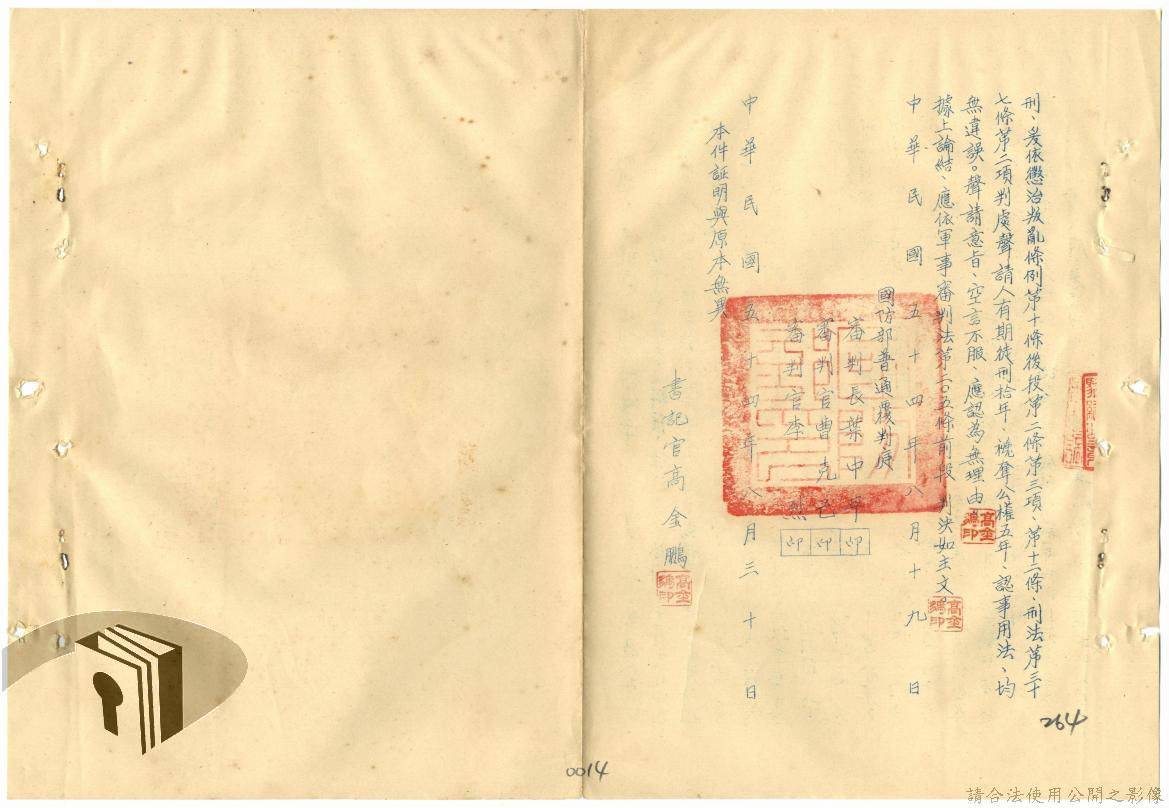 刑、爰依懲治叛亂條例第十條後段第二條第三項、第十二條、刑法第三十
七條第二項判處聲請人有期徒刑拾年、褫奪公權五年、認事用法、均
無違誤。聲請意旨、空言不服、應認為無理由。
據上論結、應依軍事審判法第二〇五條前段判決如主文。
中華民國五十四年八月十九日
國防部普通覆判庭
審判長葉中平 印
審判官曹克己 印
審判官李烈 印
中華民國五十四年八月三十日
本件証明與原本無異
書記官高金鵬
高金鵬印
高金鵬印
高金鵬印
264
0014
請合法使用公開之影像